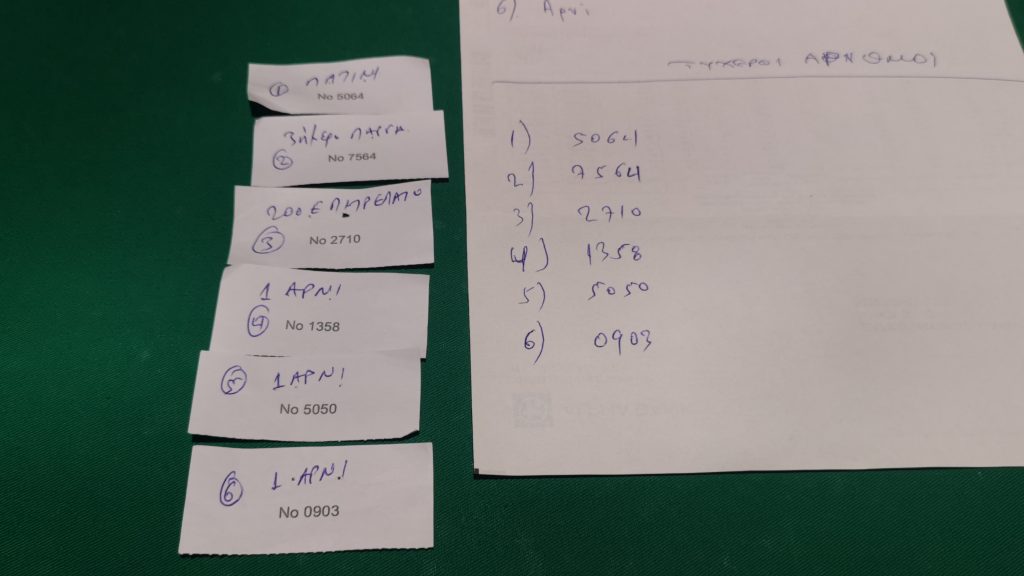 ① ΠΑΤΙΝΙ
No 5064
3ήμερο ΠΑΡΓΑ
② No 7564
200€ ΠΗΡΕΛΑΙΟ
③ No 2710
1 ΑΡΝΙ
④ No 1358
⑤ 1 ΑΡΝΙ
No 5050
⑥ 1 ΑΡΝΙ
No 0903
6) Αρνι
ΤΥΧΕΡΟΙ ΑΡΙΘΜΟΙ
1) 5064
2) 7564
3) 2710
4) 1358
5) 5050
6) 0903